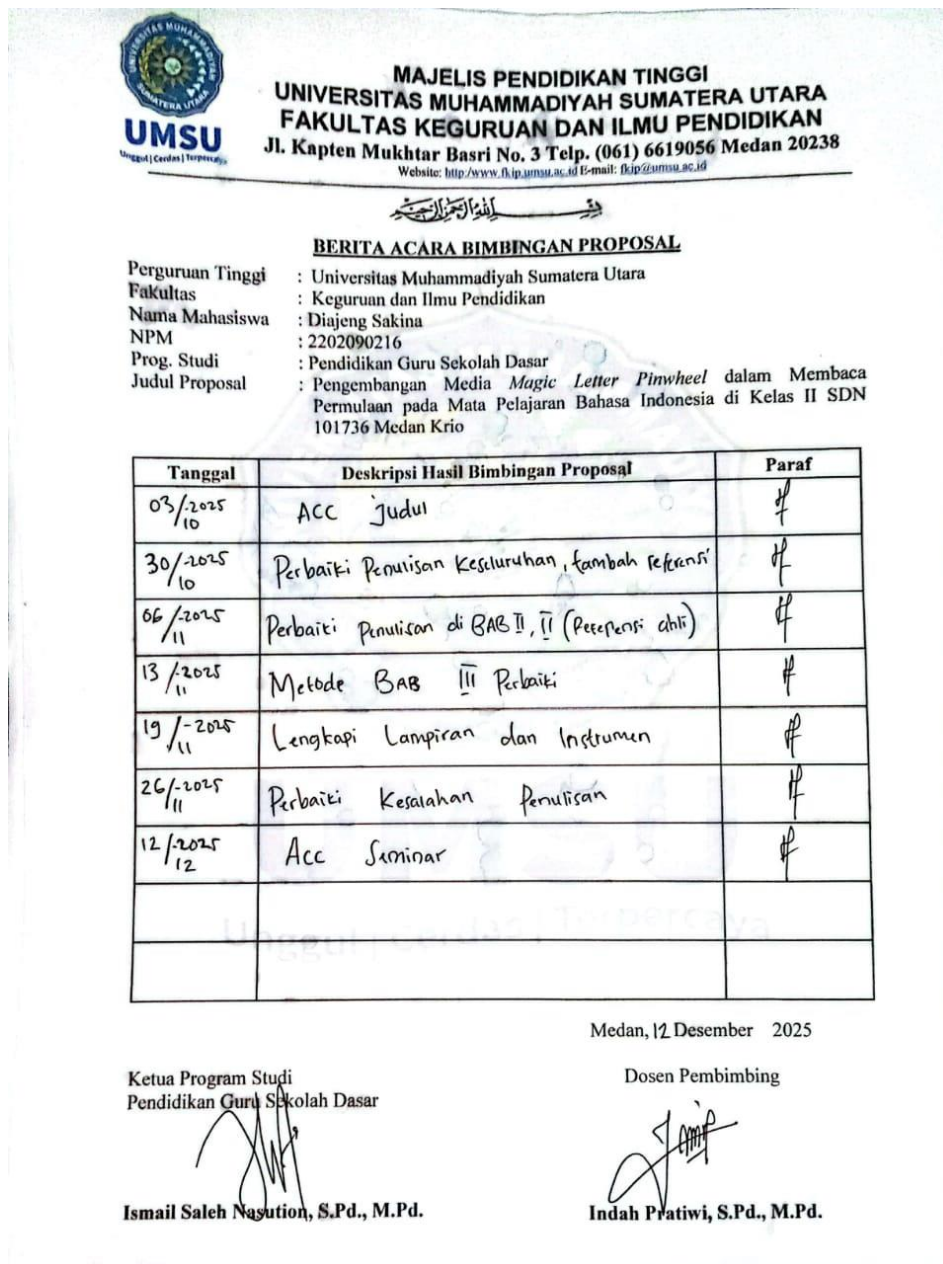 UNIVERSITAS MUHAMMADIYAH
SUMATERA UTARA
UMSU
Unggul | Cerdas | Terpercaya
MAJELIS PENDIDIKAN TINGGI
UNIVERSITAS MUHAMMADIYAH SUMATERA UTARA
FAKULTAS KEGURUAN DAN ILMU PENDIDIKAN
Jl. Kapten Mukhtar Basri No. 3 Telp. (061) 6619056 Medan 20238
Website: http:/www.fkip.umsu.ac.id E-mail: fkip@umsu.ac.id
بِسْمِ اللهِ الرَّحْمٰنِ الرَّحِيْمِ
BERITA ACARA BIMBINGAN PROPOSAL
Perguruan Tinggi : Universitas Muhammadiyah Sumatera Utara
Fakultas : Keguruan dan Ilmu Pendidikan
Nama Mahasiswa : Diajeng Sakina
NPM : 2202090216
Prog. Studi : Pendidikan Guru Sekolah Dasar
Judul Proposal : Pengembangan Media Magic Letter Pinwheel dalam Membaca
Permulaan pada Mata Pelajaran Bahasa Indonesia di Kelas II SDN
101736 Medan Krio
Tanggal Deskripsi Hasil Bimbingan Proposal Paraf
03/10-2025 ACC judul
30/10-2025 Perbaiki Penulisan Keseluruhan, tambah referensi
06/11-2025 Perbaiki Penulisan di BAB II, II (Referensi ahli)
13/11-2025 Metode BAB III Perbaiki
19/11-2025 Lengkapi Lampiran dan Instrumen
26/11-2025 Perbaiki Kesalahan Penulisan
12/12-2025 Acc Seminar
Unggul | Cerdas | Terpercaya
Medan, 12 Desember 2025
Ketua Program Studi Dosen Pembimbing
Pendidikan Guru Sekolah Dasar
Ismail Saleh Nasution, S.Pd., M.Pd. Indah Pratiwi, S.Pd., M.Pd.